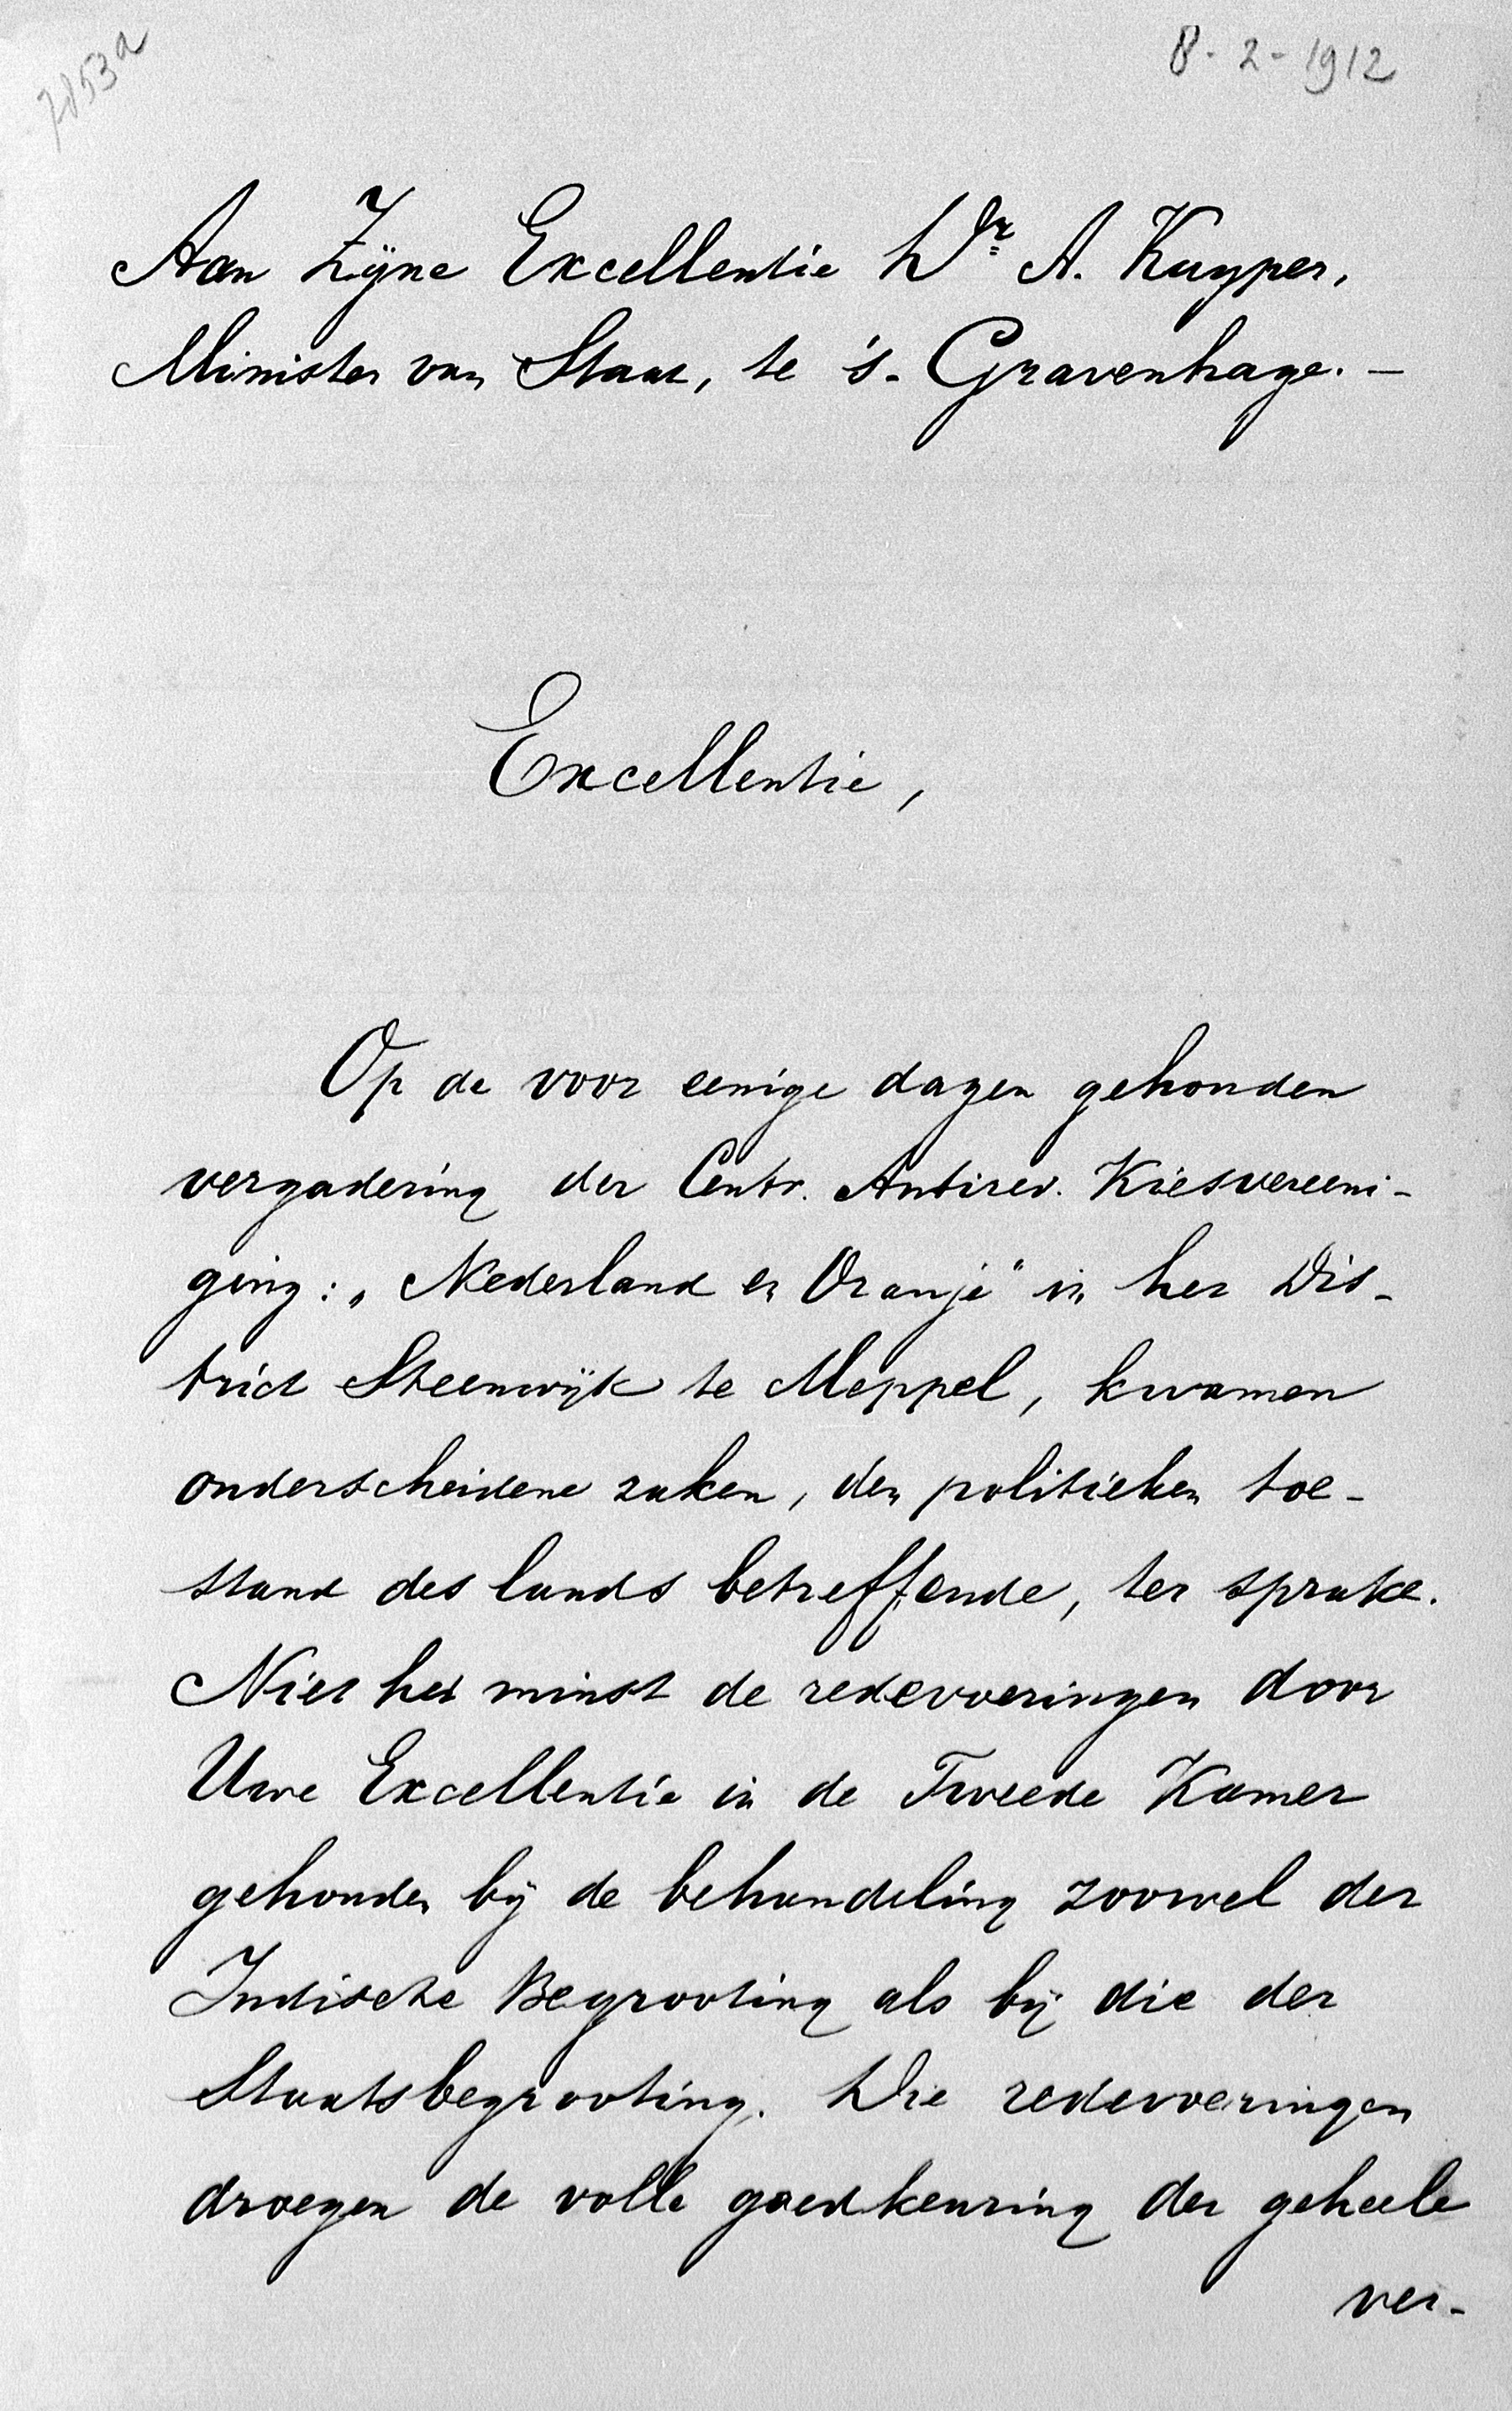 7853a
8-2-1912
Aan Zijne Excellentie Dr A. Kuyper,
Minister van Staat, te 's-Gravenhage. -
Excellentie,
Op de voor eenige dagen gehouden
vergadering der Centr. Antirev. Kiesvereeni-
ging: „Nederland en Oranje" in het Dis-
trict Steenwijk te Meppel, kwamen
onderscheidene zaken, den politieken toe-
stand des lands betreffende, ter sprake.
Niet het minst de redevoeringen door
Uwe Excellentie in de Tweede Kamer
gehouden bij de behandeling zoowel der
Indische Begrooting als bij die der
Staatsbegrooting. Die redevoeringen
droegen de volle goedkeuring der geheele
ver-